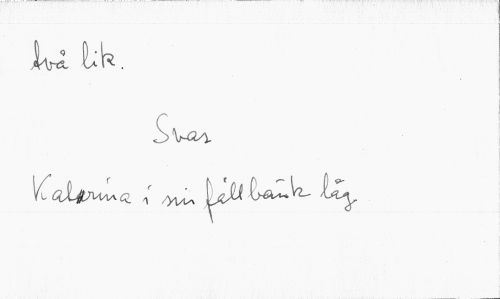 två lik.
Svar
Katarina i sin fållbänk låg